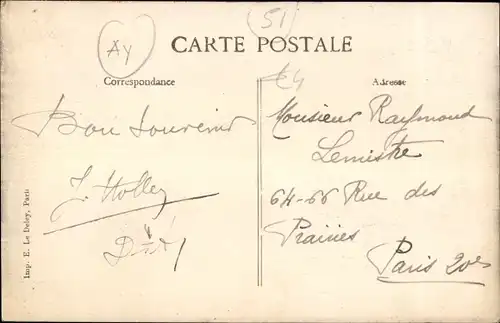 AY
51
CARTE POSTALE
Correspondance
Adresse
Bon Souvenir
Monsieur Raymond
Lemistre
64-66 Rue des
Prairies
Paris 20e
Imp. E. Le Deley, Paris